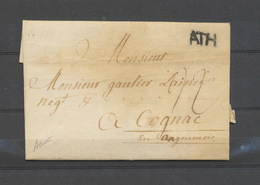 ATH
Monsieur
Monsieur gautier
neg.t
A Cognac
en angoumois